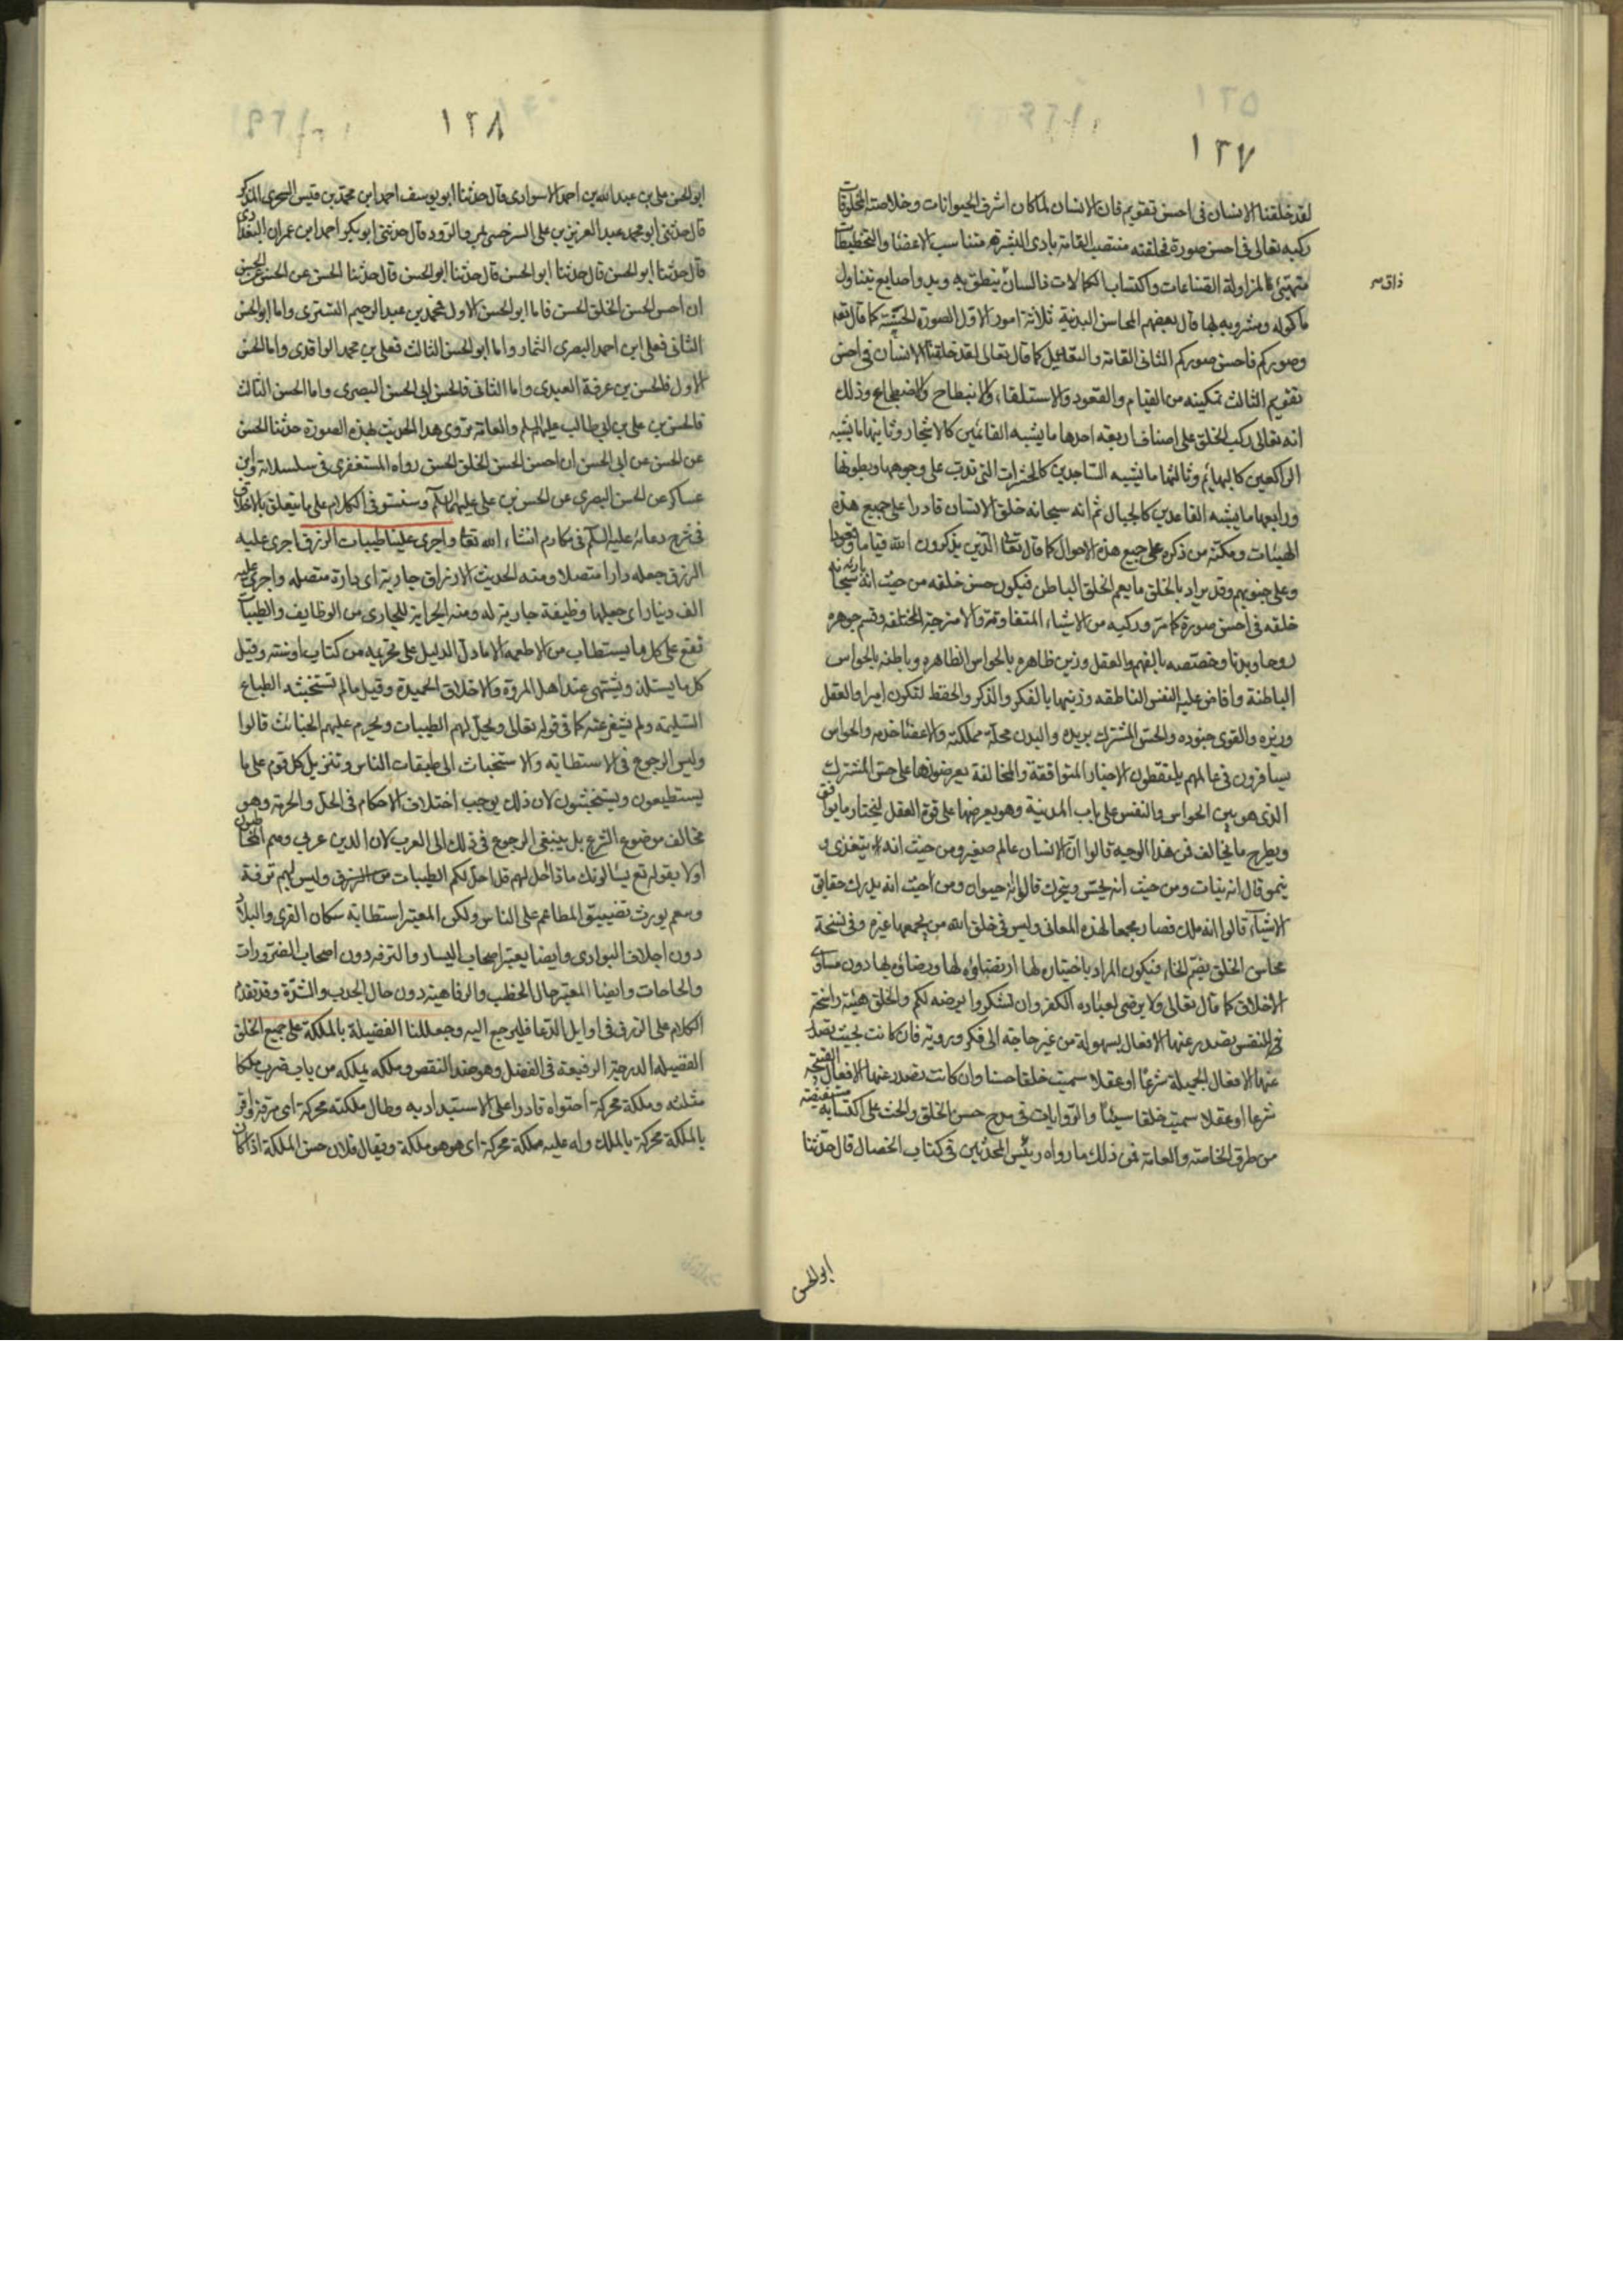 ١٢٧
لقد خلقنا الانسان فى احسن تقويم فان الانسان لما كان اشرف الحيوانات وخلاصة المخلوقات
ركبه تعالى فى احسن صورة فخلقته منتصب القامة بادى البشرة متناسب الاعضا والتخطيطات
متهيئ لمزاولة الصناعات واكتساب الكمالات ذا لسان ينطق به ويد واصابع يتناول
ماكوله ومشروبه بها قال بعضهم المحاسن البدنية ثلاثة امور الاول الصورة الحسنة كما قال تعم
وصوركم فاحسن صوركم الثانى القامة والتعديل كما قال تعالى لقد خلقنا الانسان فى احسن
تقويم الثالث تمكينه من القيام والقعود والاستلقاء والانبطاح والاضطجاع وذلك
انه تعالى ركب الخلق على اصناف اربعة احدها ما يشبه القائمين كالاشجار وثانيها ما يشبه
الراكعين كالبهائم وثالثها ما يشبه الساجدين كالحشرات التى تدب على وجوهها وبطونها
ورابعها ما يشبه القاعدين كالجبال ثم انه سبحانه خلق الانسان قادرا على جميع هذه
الهيئات ومكنه من ذكره على جميع هذه الاحوال كما قال تعالى الذين يذكرون الله قياما وقعودا
وعلى جنوبهم وقد يراد بالخلق ما يعم الخلق الباطن فيكون حسن خلقه من حيث انه سبحانه
خلقه فى احسن صورة كما مر وركبه من الاشياء المتفاوتة والامزجة المختلفة وقسم جوهره
روحا وبدنا وخصصه بالفهم والعقل وزين ظاهره بالحواس الظاهره وباطنه بالحواس
الباطنة وافاض عليه النفس الناطقه وزينها بالفكر والذكر والحفظ لتكون اميرا والعقل
وزيره والقوى جنوده والحس المشترك بريده والبدن محلة مملكته والاعضا خدمه والحواس
يسافرون فى عالمهم يلتقطون الاخبار المتوافقة والمخالفة يعرضونها على حس المشترك
الذى هو بين الحواس والنفس على باب المدينة وهو يعرضها على قوة العقل ليختار ما يوافق
ويطرح ما يخالف فمن هذا الوجه قالوا ان الانسان عالم صغير ومن حيث انه يتغذى و
ينمو قال انه نبات ومن حيث انه يحس ويتحرك قالوا انه حيوان ومن حيث انه يدرك حقايق
الاشياء قالوا انه ملك فصار مجمعا لهذه المعانى وليس فى خلق الله من يجمعها غيره وفى نسخة
محاسن الخلق بضم الخاء فيكون المراد باختيان لها ارتضاؤه لها ورضاؤه بها دون مساوى
الاخلاق كما قال تعالى ولا يرضى لعباده الكفر وان تشكروا يرضه لكم والخلق هيئة راسخة
فى النفس يصدر عنها الافعال بسهولة من غير حاجة الى فكر وروية فان كانت بحيث تصدر
عنها الافعال الجميلة شرعا او عقلا سميت خلقا حسنا وان كانت تصدر عنها الافعال القبيحه
شرعا او عقلا سميت خلقا سيئا والروايات فى مدح حسن الخلق والحث على اكتسابه مستفيضة
من طرق الخاصة والعامة فمن ذلك ما رواه رئيس المحدثين فى كتاب الخصال قال حدثنا
ابو الحسن
١٢٨
ابو الحسن على بن عبد الله بن احمد الاسوارى قال حدثنا ابو يوسف احمد ابن محمد بن قيس السجزى المذكر
قال حدثنى ابو محمد عبد العزيز بن على السرخسى بمرو الرود قال حدثنى ابو بكر احمد ابن عمران البغدادى
قال حدثنا ابو الحسن قال حدثنا ابو الحسن قال حدثنا ابو الحسن قال حدثنا الحسن عن الحسن عن الحسن
ان احسن الحسن الخلق الحسن فاما ابو الحسن الاول فمحمد بن عبد الرحيم التسترى واما ابو الحسن
الثانى فعلى ابن احمد البصرى التمار واما ابو الحسن الثالث فعلى بن محمد الواقدى واما الحسن
الاول فالحسن بن عرفة العبدى واما الثانى فالحسن ابى الحسن البصرى واما الحسن الثالث
فالحسن بن على بن ابى طالب عليهما السلم والعامة تروى هذا الحديث بهذه الصورة حدثنا الحسن
عن الحسن عن ابى الحسن ان احسن الحسن الخلق الحسن رواه المستغفرى فى سلسلاته وابن
عساكر عن الحسن البصرى عن الحسن بن على عليهما السلم وسنستوفى الكلام على ما يتعلق بالاخلاق
فى شرح دعائه عليه السلم فى مكارم انشاء الله تعا واجرى علينا طيبات الرزق اجرى عليه
الرزق جعله دارا متصلا ومنه الحديث الارزاق جارية اى دارة متصله واجرى عليه
الف دينار اى جعلها وظيفة جارية له ومنه الجراية للجارى من الوظايف والطيبات
تقع على كل ما يستطاب من الاطعمه الا ما دل الدليل على تحريمه من كتاب او سنة وقيل
كل ما يستلذ ويشتهى عند اهل المروة والاخلاق الحميدة وقيل ما لم تستخبثه الطباع
السليمة ولم تنفر عنه كما فى قوله تعالى ويحل لهم الطيبات ويحرم عليهم الخبائث قالوا
وليس الرجوع فى الاستطابة والاستخباث الى طبقات الناس وتنزيل كل قوم على ما
يستطيبون ويستخبثون لان ذلك يوجب اختلاف الاحكام فى الحل والحرمة وهو
مخالف موضوع الشرع بل ينبغى الرجوع فى ذلك الى العرب لان الدين عربى وهم المخاطبون
اولا بقوله تع يسالونك ماذا احل لهم قل احل لكم الطيبات من الرزق وليس لهم ترفة
وتنعم يورث تضييق المطاعم على الناس ولكن المعتبر استطابة سكان القرى والبلاد
دون اجلاف البوادى وايضا يعتبر اصحاب اليسار والترفه دون اصحاب الضرورات
والحاجات وايضا المعتبر حال الخطب والرفاهية دون حال الجدب والشدة وقد تقدم
الكلام على الرزق فى اوايل الدعا فليرجع اليه وجعل لنا الفضيلة بالملكة على جميع الخلق
الفضيله الدرجة الرفيعة فى الفضل وهو ضد النقص وملكه يملكه من باب ضرب ملكا
مثلثه وملكة محركة احتواه قادرا على الاستبداد به وطال ملكته محركة اى رقه واقر
بالملكة محركة بالملك وله عليه ملكة محركة اى هو هو ملكة ويقال فلان حسن الملكة اذا كان